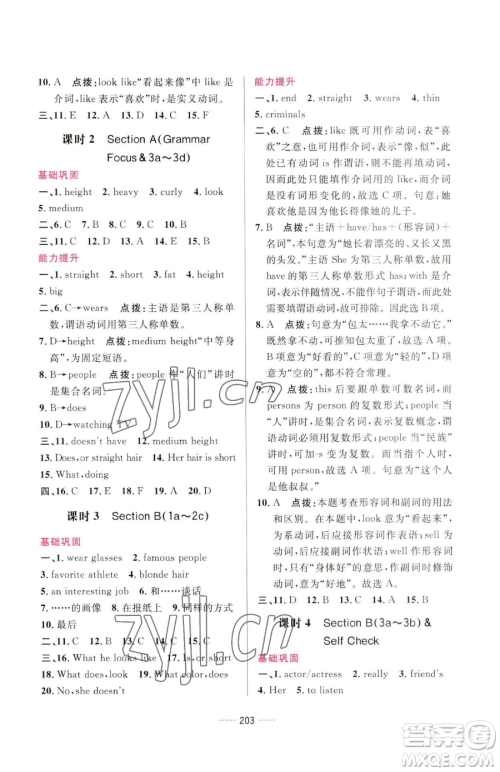 10. A 点拨:look like“看起来像”中的 like 是
介词,like 表示“喜欢”时,是实义动词。
三、11. E 12. D 13. F 14. B 15. C
课时 2 Section A(Grammar
Focus&3a～3d)
基础巩固
一、1. height 2. heavy 3. curly 4. look
5. medium
二、6. C 7. B 8. C 9. B 10. C
三、11. C 12. D 13. E 14. A 15. B
能力提升
一、1. straight 2. short 3. fat 4. height
5. big
二、6. C→wears 点拨:主语是第三人称单
数,谓语动词用第三人称单数。
7. D→height 点拨:medium height“中等身
高”,为固定短语。
8. B→people 点拨:people 作“人们”讲时
是集合名词。
9. B→does
10. D→watching TV
三、11. doesn't have 12. medium height
13. Does,or straight hair 14. Her hair is
15. What,doing
四、16. C 17. B 18. A 19. D 20. C
课时 3 Section B(1a～2c)
基础巩固
一、1. wear glasses 2. famous people
3. favorite athlete 4. blonde hair
5. an interesting job 6. 和……谈话
7. ……的画像 8. 在报纸上 9. 同样的方式
10. 最后
二、11. D 12. B 13. A 14. C 15. D
三、16. What he look like 17. Is,or short
18. What do 19. What does look like
20. No,she doesn't
能力提升
一、1. end 2. straight 3. wears 4. thin
5. criminals
二、6. C 点拨:like 既可用作动词,表“喜
欢”之意,也可用作介词,表“像”之意,此
处已有动词 is 作谓语,则不能再用动词
作谓语,故此处用作介词,作介词用时,
没有词形变化的,故选 C 项。句意:她喜
欢她的儿子,因为他长得像她的儿子。
7. B 点拨:“主语＋have/has＋(形容词)＋
名词”,本句意为“她长着漂亮的、又长又黑
的头发。”主语 She 为第三人称单数,故用
have 的第三人称单数形式 has;with have,
表示伴随情况,不能作句子谓语;there is 句
型不能有主语,故可排除。因此选 B 项。
8. A 点拨:句意为“包太……我拿不动它。”
既然拿不动,可推知包太重,故选 A 项。
B 项意为“好看的”,C 项意为“轻的”,D
项意为“空的”,都不符合句意。
9. A 点拨:this 后要跟单数可数名词,而
persons 为 person 的复数形式;people 当
“人”讲时,是集合名词,表复数概念,作主
语时,谓语动词必须用复数;当“民族”讲
时,则可作单数,而当指某个人时,不可用
people,故选 A。句意为“这个戴眼镜的人是
他叔叔。”
10. A 点拨:本题考查形容词和副词的用法
和区别。动词 look 意为“看起来”,为系动
词,后应接形容词作表语;而 sell 为实义动
词,后应接副词作状语;well 作形容词时,
只有“身体好”的意思,作副词时用于修饰
动词。故选 A。
三、11. B 12. C 13. C 14. B 15. C
课时 4 Section B(3a～3b) &
Self Check
基础巩固
一、1. actor/actress 2. really 3. friend's
4. Her 5. to listen
203